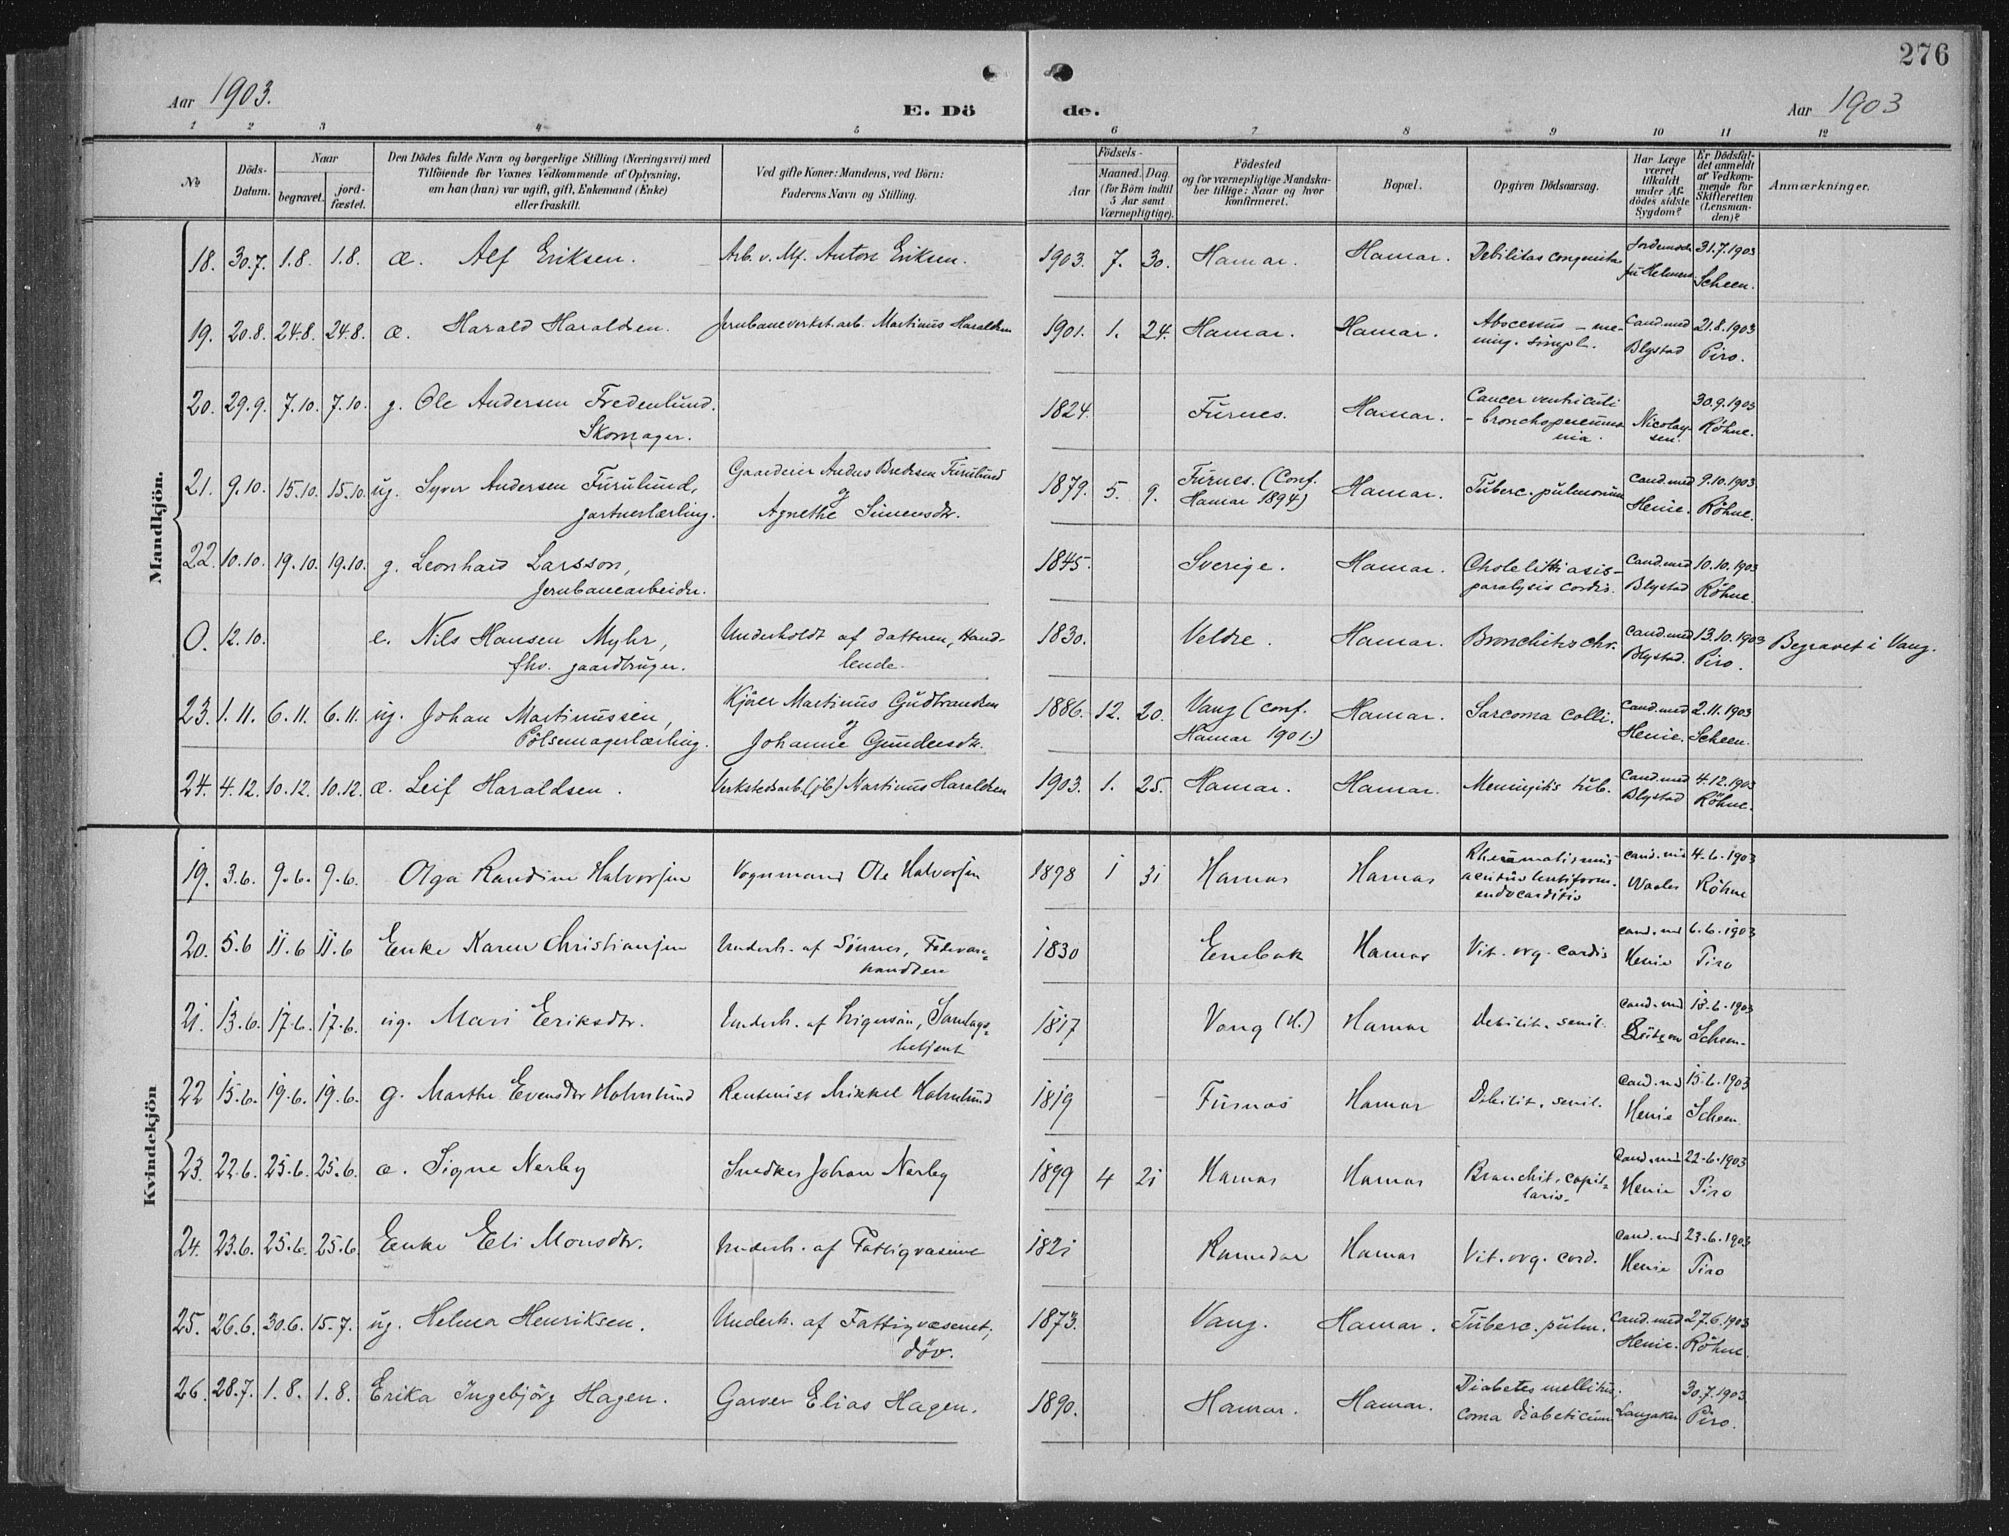 276
Aar 1903.
E. Dö de.
Aar 1903
1 2 3 4 5 6 7 8 9 10 11 12
No
Döds-Datum.
Naar
begravet.
jord-fæstet.
Den Dödes fulde Navn og borgerlige Stilling (Næringsvei) med
Tilföiende for Voxnes Vedkommende af Oplysning,
om han (hun) var ugift, gift, Enkemand (Enke)
eller fraskilt.
Ved gifte Koner: Mandens, ved Börn:
Faderens Navn og Stilling.
Födsels-
Aar
Maaned. Dag.
(for Börn indtil
5 Aar samt
Værnepligtige).
Födested
og for værnepligtige Mandska-
ber tillige: Naar og hvor
konfirmeret.
Bopæl.
Opgiven Dödsaarsag.
Har Læge
været
tilkaldt
under Af-
dödes sidste
Sygdom?
Er Dödsfal-
det anmeldt
af Vedkom-
mende for
Skifteretten
(Lensman-
den)?
Anmærkninger.
Mandkjön.
18. 30.7. 1.8. 1.8. æ. Alf Eriksen. Arb. v. Mf. Anton Eriksen. 1903. 7. 30. Hamar. Hamar. Debilitas congenita 31.7.1903
Scheen.
19. 20.8. 24.8. 24.8. æ. Harald Haraldsen. Jernbaneverkst.arb. Martinus Haraldsen 1901. 1. 24. Hamar. Hamar. Abscessus - me- Cand.med 21.8.1903
ning. simpl. Blystad Piro.
20. 29.9. 7.10. 7.10. g. Ole Andersen Fredenlund. 1824. Furnes. Hamar. Cancer ventriculi 30.9.1903
Skomager. - bronchopneumo- Nicolay- Röhne.
nia. sen.
21. 9.10. 15.10. 15.10. ug. Syver Andersen Furulund, Gaardeier Andus Bredesen Furulund 1879. 5. 9. Furnes. (Conf. Hamar. Tuberc. pulmonum Cand.med 9.10.1903
gartnerlærling. og Agnethe Simensdtr. Hamar 1894) Henie. Röhne.
22. 10.10. 19.10. 19.10. g. Leonhard Larsson, 1845. Sverige. Hamar. Cholelithiasis - Cand.med 10.10.1903
Jernbanearbeider. paralysis cordis. Blystad Röhne.
0. 12.10. e. Nils Hansen Myhr, Underholdt af datteren, Hand- 1830. Veldre. Hamar. Bronchitis chr. Cand.med 13.10.1903 Begravet i Vang.
fhv. gaardbruger. lende. Blystad. Piro.
23. 1.11. 6.11. 6.11. ug. Johan Martinussen, Kjörer Martinus Gudbrandsen 1886. 12. 20. Vang (conf. Hamar. Sarcoma colli. Cand.med 2.11.1903
Pölsemagerlærling. og Johanne Gundersdtr. Hamar 1901.) Henie. Scheen.
24. 4.12. 10.12. 10.12. æ. Leif Haraldsen. Verkstedsarb. (jb) Martinus Haraldsen 1903. 1. 25. Hamar. Hamar. Meningitis tub. Cand.med 4.12.1903
Blystad Röhne.
Kvindekjön
19. 3.6. 9.6. 9.6. Olga Randine Halvorsen Vognmand Ole Halvorsen 1898 1 31 Hamar Hamar Rheumatismus cand.med 4.6.1903
acutus endocarditis Waaler Röhne
20. 5.6 11.6 11.6 Enke Karen Christiansen Underh. af Sönner, 1830 Enebak Hamar Vit. org. cordis cand.med 6.6.1903
handlere Henie Piro
21. 13.6. 17.6. 17.6. ug. Mari Eriksdtr. Underh. af 1817 Vang (H.) Hamar Debilit. senil. cand.med 13.6.1903
betjent Scheen.
22 15.6. 19.6. 19.6. g. Marthe Evensdtr Holmlund Rentenist Mikkel Holmlund 1819 Furnæs Hamar Debilit. senil. Cand.med 15.6.1903
Henie Scheen
23. 22.6. 25.6. 25.6. æ. Signe Nerby Snedker Johan Nerby 1899 4 21 Hamar Hamar Bronchit. capil- Cand.med 22.6.1903
laris. Henie Piro
24. 23.6. 25.6. 25.6. Enke Eli Monsdtr. Underh. af Fattigvæsenet 1821 Romedal Hamar Vit. org. cord. cand.med 23.6.1903
Henie Piro
25. 26.6. 30.6. 15.7. ug. Helma Henriksen. Underh. af Fattigvæsenet, 1873. Vang. Hamar. Tuberc. pulm. Cand.med 27.6.1903
döv. Henie. Röhne.
26. 28.7. 1.8. 1.8. Erika Ingebjörg Hagen. Garver Elias Hagen. 1890. Hamar. Hamar. Diabetes mellitus, 30.7.1903
coma diabeticum Langaker Piro.